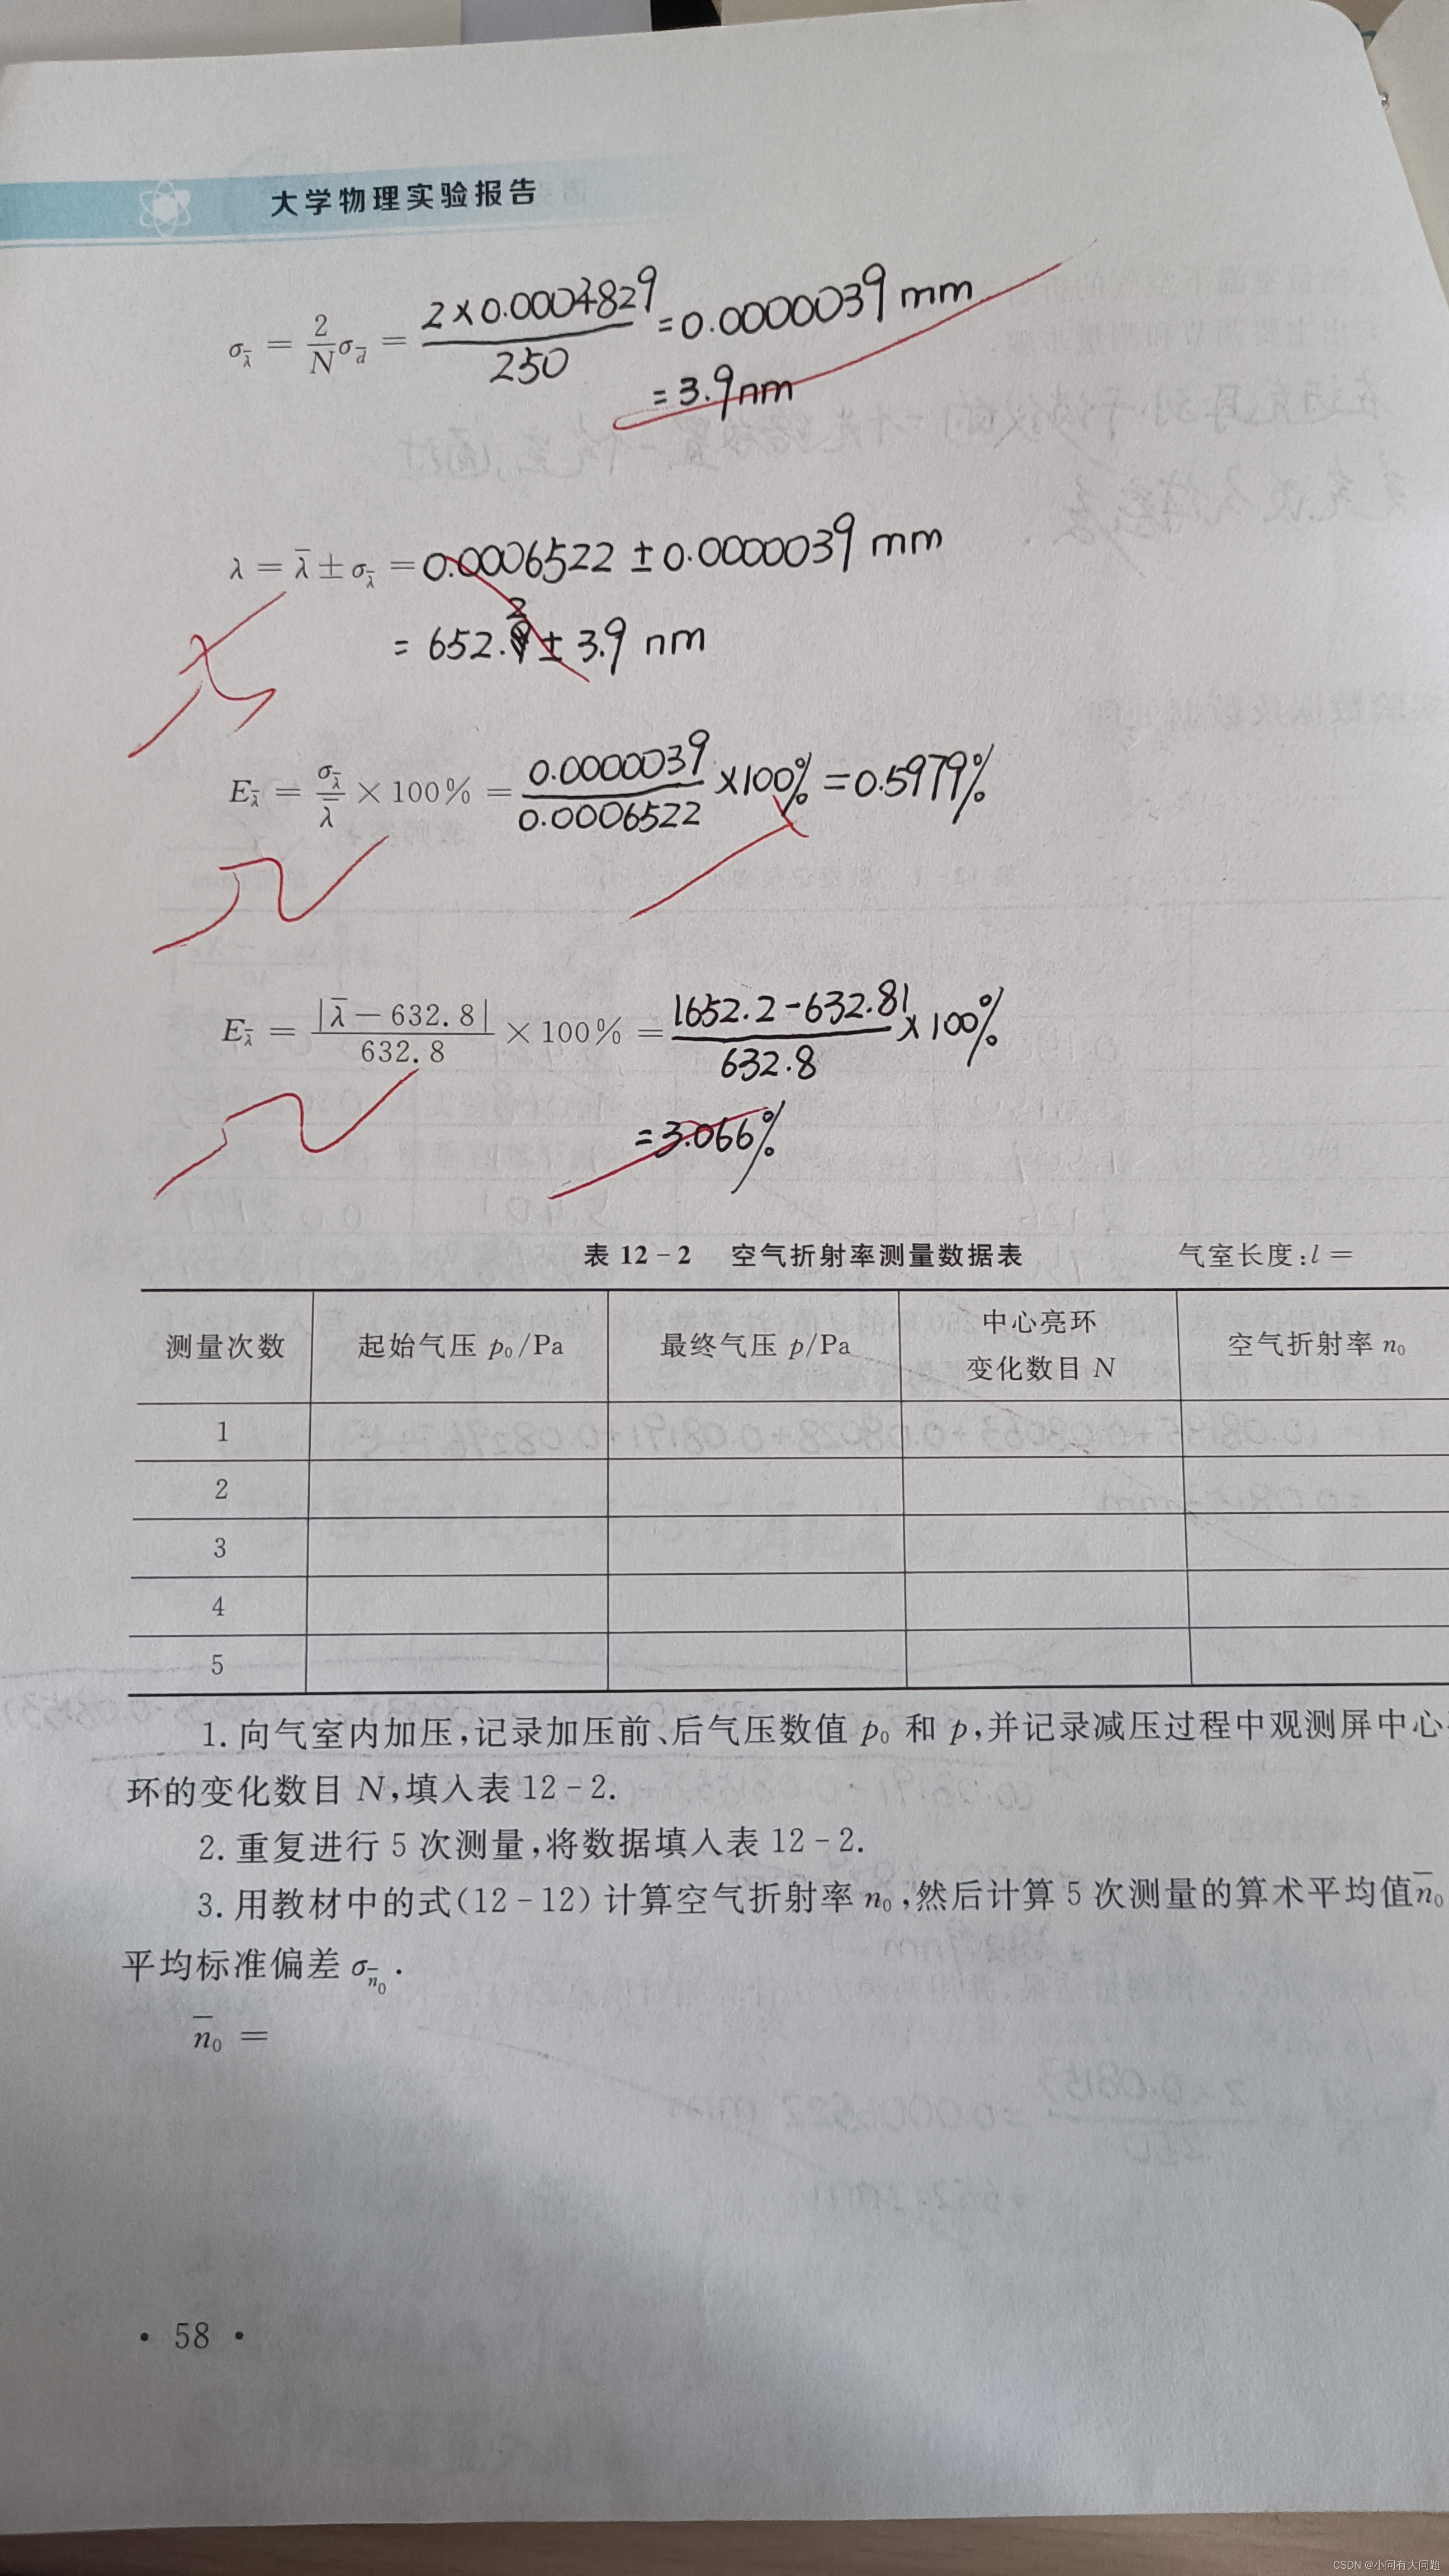 大学物理实验报告
σ_λ̄ = 2/N σ_d̄ = 2×0.0004829/250 = 0.0000039 mm
= 3.9nm
λ = λ̄ ± σ_λ̄ = 0.0006522 ± 0.0000039 mm
= 652.2 ± 3.9 nm
E_λ̄ = σ_λ̄/λ̄ × 100% = 0.0000039/0.0006522 ×100% = 0.5979%
E_λ̄ = |λ̄ - 632.8|/632.8 × 100% = |652.2-632.8|/632.8 × 100%
= 3.066%
表 12-2 空气折射率测量数据表 气室长度:l =
测量次数 起始气压 p₀/Pa 最终气压 p/Pa 中心亮环变化数目 N 空气折射率 n₀
1
2
3
4
5
1. 向气室内加压,记录加压前、后气压数值 p₀ 和 p,并记录减压过程中观测屏中心
环的变化数目 N,填入表 12-2.
2. 重复进行 5 次测量,将数据填入表 12-2.
3. 用教材中的式(12-12)计算空气折射率 n₀,然后计算 5 次测量的算术平均值n̄₀
平均标准偏差 σ_n̄₀.
n̄₀ =
· 58 ·
CSDN @小问有大问题